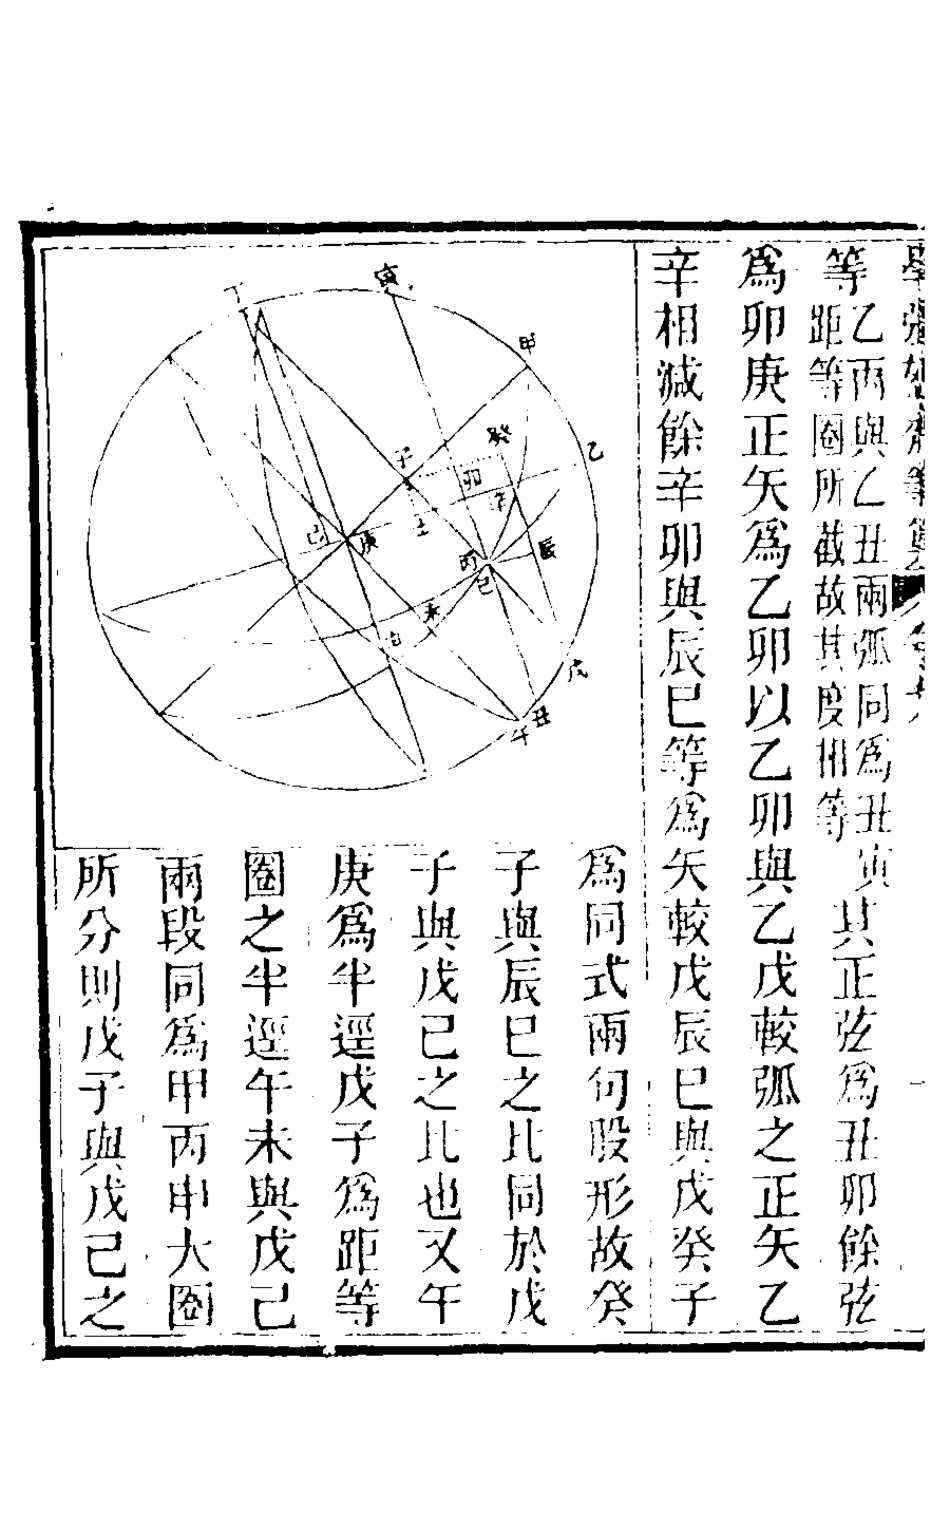 等乙丙與乙丑兩弧同為丑寅
距等圈所截故其度相等
其正弦為丑卯餘弦
為卯庚正矢為乙卯以乙卯與乙戊較弧之正矢乙
辛相減餘辛卯與辰巳等為矢較戊辰巳與戊癸子
為同式兩句股形故癸
子與辰巳之比同於戊
子與戊己之比也又午
庚為半徑戊子為距等
圈之半徑午未與戊己
兩段同為甲丙申大圈
所分則戊子與戊己之
丁
寅
甲
癸
乙
子
卯
辛
壬
己
庚
丙
巳
辰
未
申
戊
丑
午